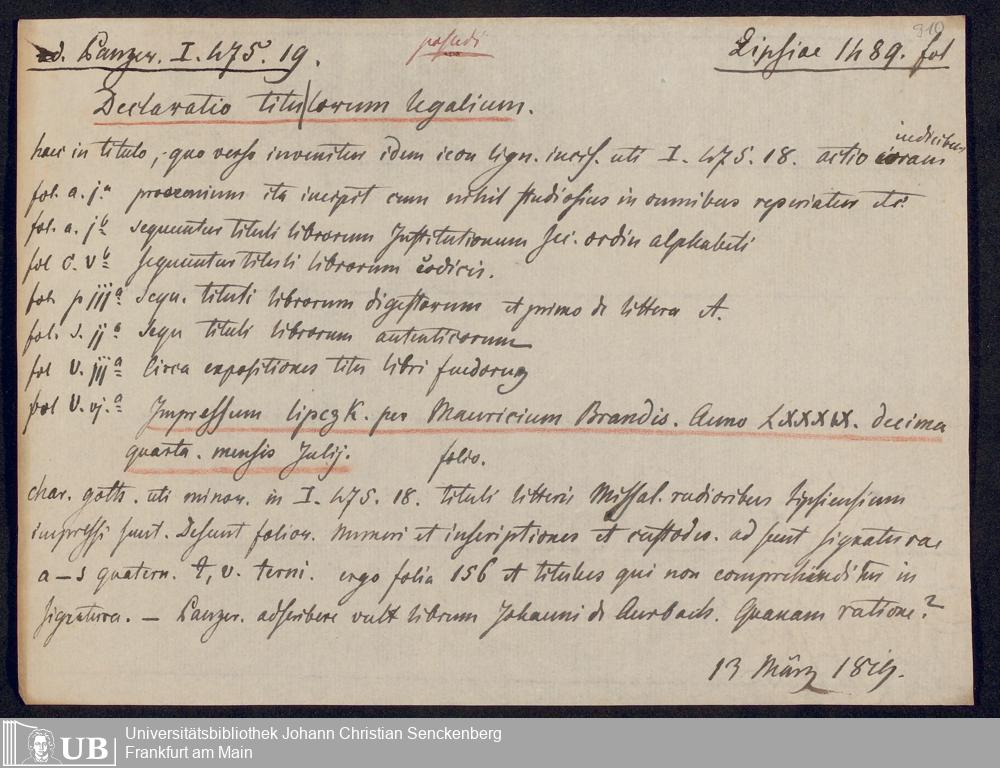 ad. Panzer. I. 475. 19. possedi Lipsiae 1489. fol
310
Declaratio titu|lorum legalium.
indicibus
haec in titulo, quo verso invenitur idem icon lign. incis. uti I. 475. 18. actio coram
fol. a. j.a prooemium ita incipit cum nihil studiosius in omnibus reperiatur etc.
fol. a. jb sequuntur tituli librorum Institutionum sec. ordin alphabeti
fol c. vb sequuntur tituli librorum codicis.
fol. p iija sequ. tituli librorum digestorum et primo de littera A.
fol. s. ija sequ tituli librorum autenticorum
fol v. iija Circa expositiones titu libri feudorum
fol v. vj.a Impressum lipczk. per Mauricium Brandis. Anno LXXXIX. decima
quarta. mensis Julij. folio.
char. goth. uti minor. in I. 475. 18. tituli litteris Missal. rudioribus Lipsiensium
impressi sunt. Desunt folior. numeri et inscriptiones et custodes. ad sunt signaturae
a – s quatern. t, v. terni. ergo folia 156 et titulus qui non comprehenditur in
signatura. – Panzer. adscribere vult librum Johanni de Aurbach. Quanam ratione?
13 März 1819.
UB
Universitätsbibliothek Johann Christian Senckenberg
Frankfurt am Main